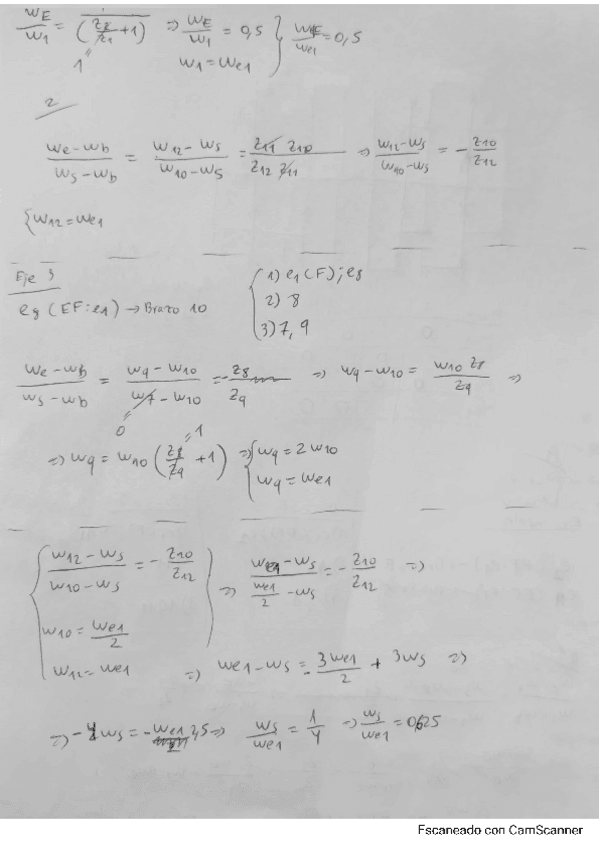 WE/W1 = 1/(Z8/Z1 + 1) ⇒ WE/W1 = 0,5 } WE/We1 = 0,5
1 w1 = we1
2
we-wb/ws-wb = w12-ws/w10-ws = Z11 Z10/Z12 Z11 ⇒ w12-ws/w10-ws = - Z10/Z12
{w12 = we1
Eje 3
e8 (EF: e1) → Brazo 10 { 1) e1 (F); e8
2) 8
3) 7, 9
we-wb/ws-wb = w9-w10/w7-w10 = - Z8/Z9 ⇒ w9-w10 = w10 Z8/Z9 ⇒
0 1
⇒ w9 = w10 (Z8/Z9 + 1) ⇒ { w9 = 2 w10
w9 = we1
{ w12-ws/w10-ws = - Z10/Z12 ⇒ we1-ws/we1/2 - ws = - Z10/Z12 ⇒
w10 = we1/2
w12 = we1 ⇒ we1-ws = - 3we1/2 + 3ws ⇒
⇒ -4ws = -we1 2,5 ⇒ ws/we1 = 1/4 ⇒ ws/we1 = 0,625
Escaneado con CamScanner